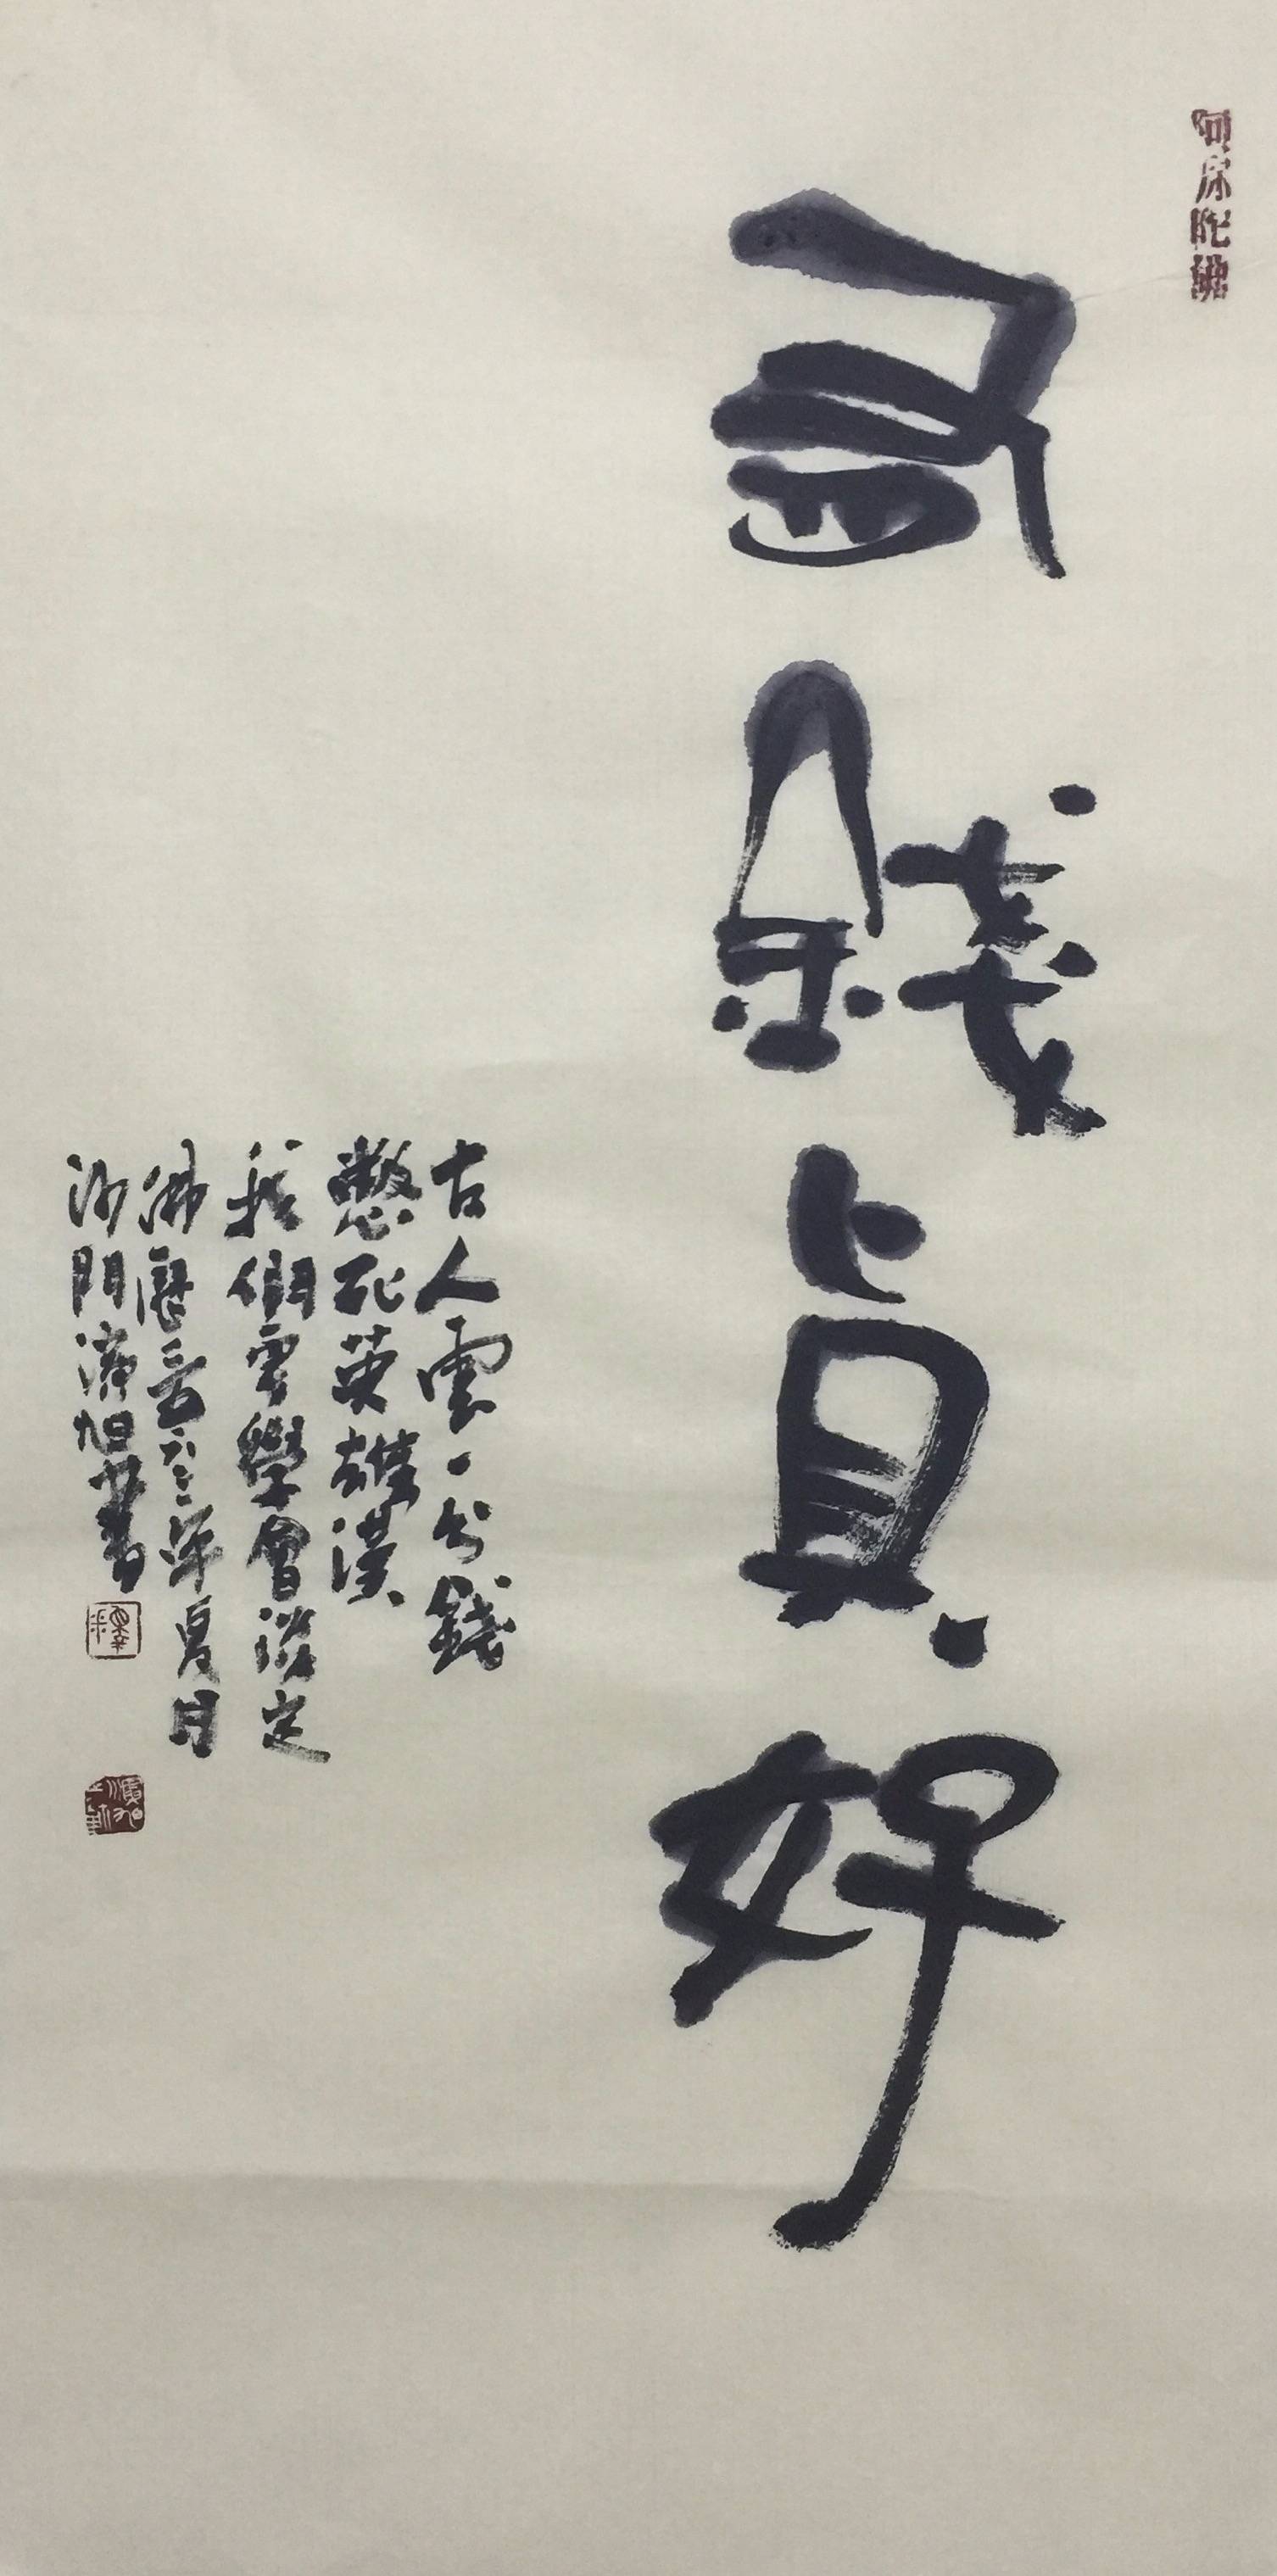 阿彌陀佛
有錢真好
古人雲一分錢
憋死英雄漢
我們要學會淡定
佛曆二五六三年夏日
沙門演旭書
釋